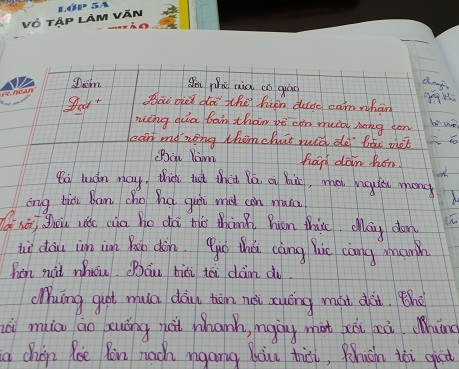 LỚP 5A
VỞ TẬP LÀM VĂN
Điểm
Lời phê của cô giáo
Đạt+
Bài viết đã thể hiện được cảm nhận
riêng của bản thân về cơn mưa, song con
cần mở rộng thêm chút nữa để bài viết
hấp dẫn hơn.
Bài làm
Cả tuần nay, thời tiết thật là oi bức, mọi người mong
ông trời ban cho hạ giới một cơn mưa.
Thế rồi, Điều ước của họ đã trở thành hiện thực. Mây đen
từ đâu ùn ùn kéo đến. Gió thổi càng lúc càng mạnh
hơn rất nhiều. Bầu trời tối dần đi.
Những giọt mưa đầu tiên rơi xuống mặt đất. Thế
rồi mưa ào xuống rất nhanh, ngày một xối xả. Những
tia chớp lóe lên rạch ngang bầu trời, khiến tôi giật